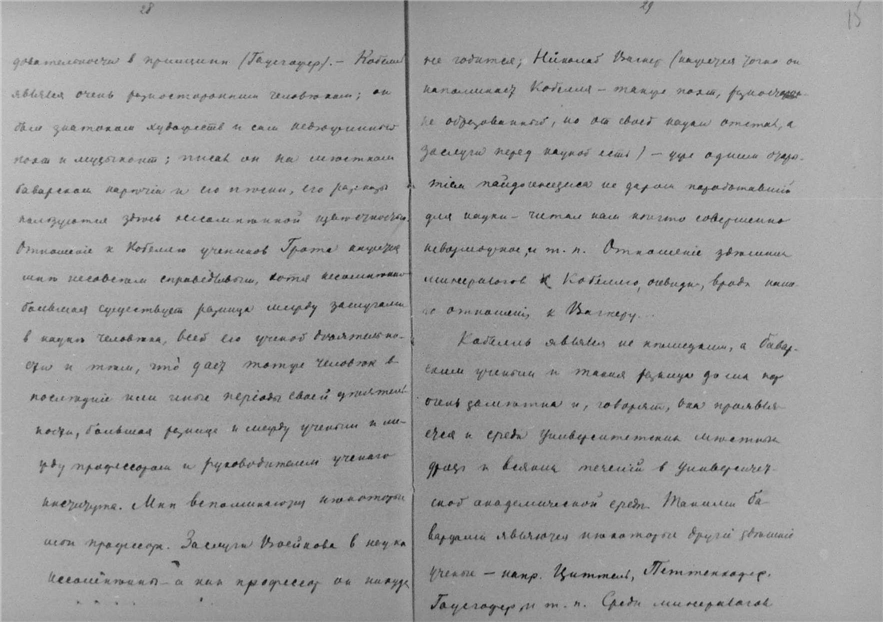 28
довательности в принципи (Гаусгофер). – Кобелль
являлся очень разносторонним человѣком; он
был знатоком художеств и сам недюжинный
поэт и музыкант; писал он на мѣстном
баварском нарѣчіи и его пѣсни, его разсказы
пользуются здѣсь несомнѣнной извѣстностью.
Отношеніе к Кобеллю учеников Грота кажется
мнѣ не совсѣм справедливым, хотя несомнѣнно
большая существует разница между заслугами
в науке человѣка, всей его ученой дѣятельно-
сти и тѣм, что дает тот же человѣк в
послѣдній или иные періоды своей дѣятель-
ности, большая разница и между ученым и ме-
жду профессором и руководителем ученаго
института. Мнѣ вспоминаются нѣкоторые
мои профессора. Заслуги Воейкова в науке
несомнѣнны – а как профессор он никуда
29
15
не годится; Николай Вагнер (кажется точно он
напоминает Кобелля – также поэт, разносторон-
не образованный, но от своей науки отстал, а
заслуги перед наукой есть) – уже одним откры-
тіем пайдогенезиса не даром поработавшій
для науки – читал нам нѣчто совершенно
невозможное, и т. п. Отношеніе здѣшних
минералогов к Кобеллю, очевидно, вродѣ наше-
го отношенія к Вагнеру...
Кобелль являлся не нѣмецким, а бавар-
ским ученым и такая разница до сих пор
очень замѣтна и, говорят, она проявля-
ется и среди университетских мѣстных
дрязг и всяких теченій в университет-
ской академической среде. Такими ба-
варцами являются нѣкоторые другіе здѣшніе
ученые – напр. Циттель, Петтенкофер,
Гаусгофер, и т. п. Среди минералогов